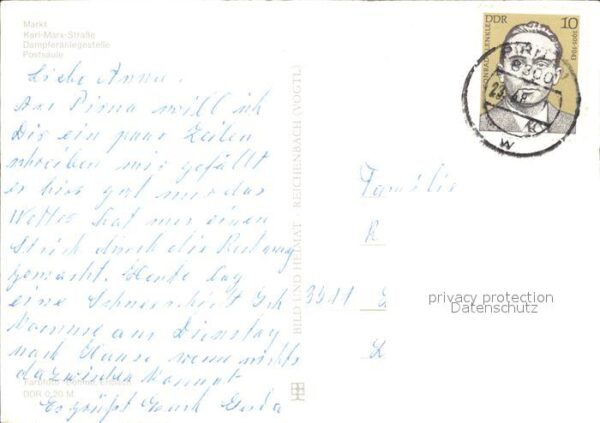 Markt
Karl-Marx-Straße
Dampferanlegestelle
Postsäule
Liebe Anna.
Aus Pirna will ich
Dir ein paar Zeilen
schreiben mir gefällt
es hier gut nur das
Wetter hat mir einen
Strich durch die Rechnung
gemacht. Heute lag
eine Schneeschicht Ich
komme am Dienstag
nach Hause wenn nichts
dazwischen kommt
Es grüßt Euch Gerda
DDR 0,20 M
BILD UND HEIMAT · REICHENBACH (VOGTL)
DDR 10
KONRAD BLENKLE
1901-1943
PIRNA 1
8300
23.-4.
Familie
R
3511 L
L
privacy protection
Datenschutz